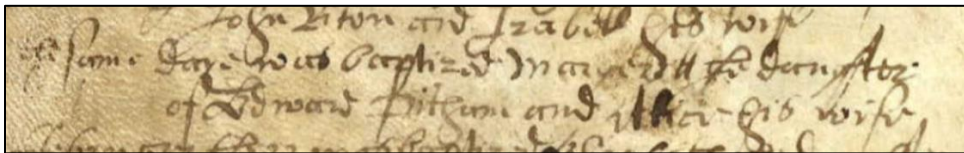 John Eiton and Isabell his wife
same daye was baptized Margerit the daughter
of Edward Pitham and Allice his wife